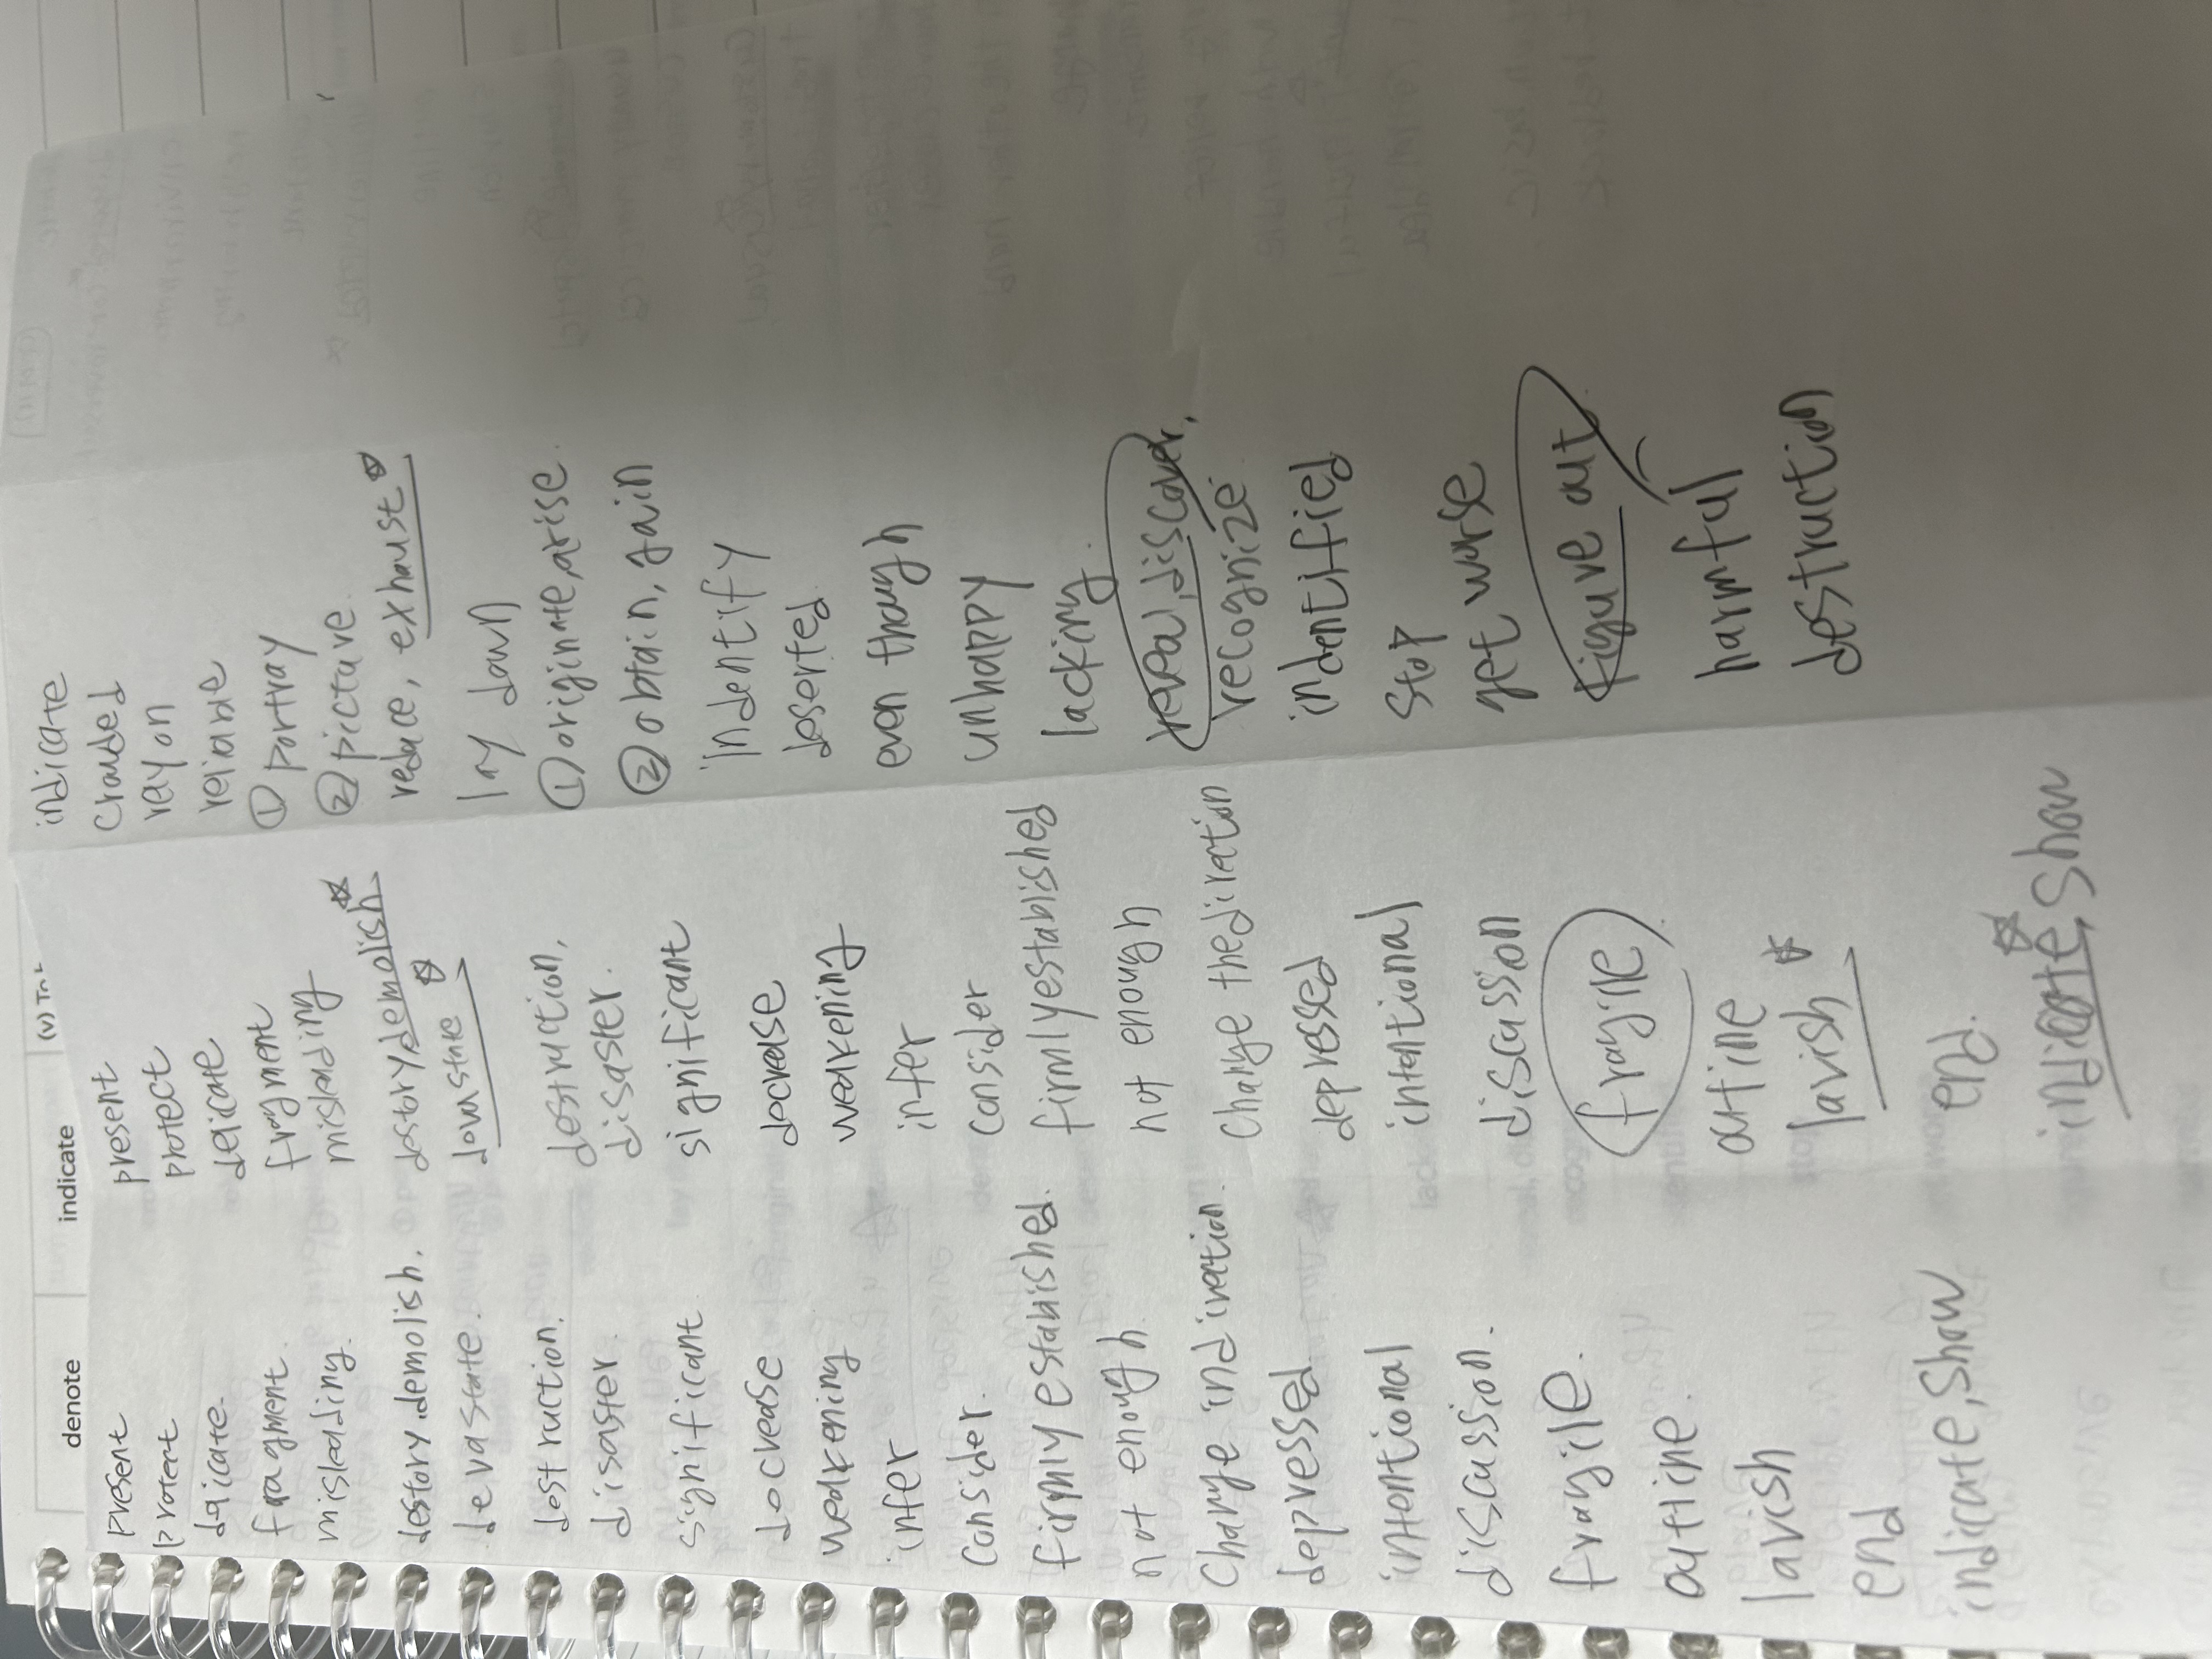 denote
indicate
(v) To
present
protect
delicate.
fragment.
misleading.
destory.demolish.
devastate.
destruction.
disaster.
significant.
decrease
weakening
infer
consider.
firmly established.
not enough.
Change indiration.
depressed.
intentional
discussion.
fragile.
outline.
lavish
end
indicate, show
present
protect
delicate
fragment
misleading
destory,demolish
devastate
destruction,
disaster.
significant
decrease
weakening
infer
consider
firmly established
not enough
Change the diration
depressed
intentional
discussion
fragile
outine
lavish
end.
indicate, show
indicate
Crowded
rely on
reliable
① portray
② picture.
reduce, exhaust
lay down
① originate, arise.
② obtain, gain
indentify
deserted
even though
unhappy
lacking.
reveal, discover,
recognize.
indentified
stop
get worse
figure out.
harmful
destruction